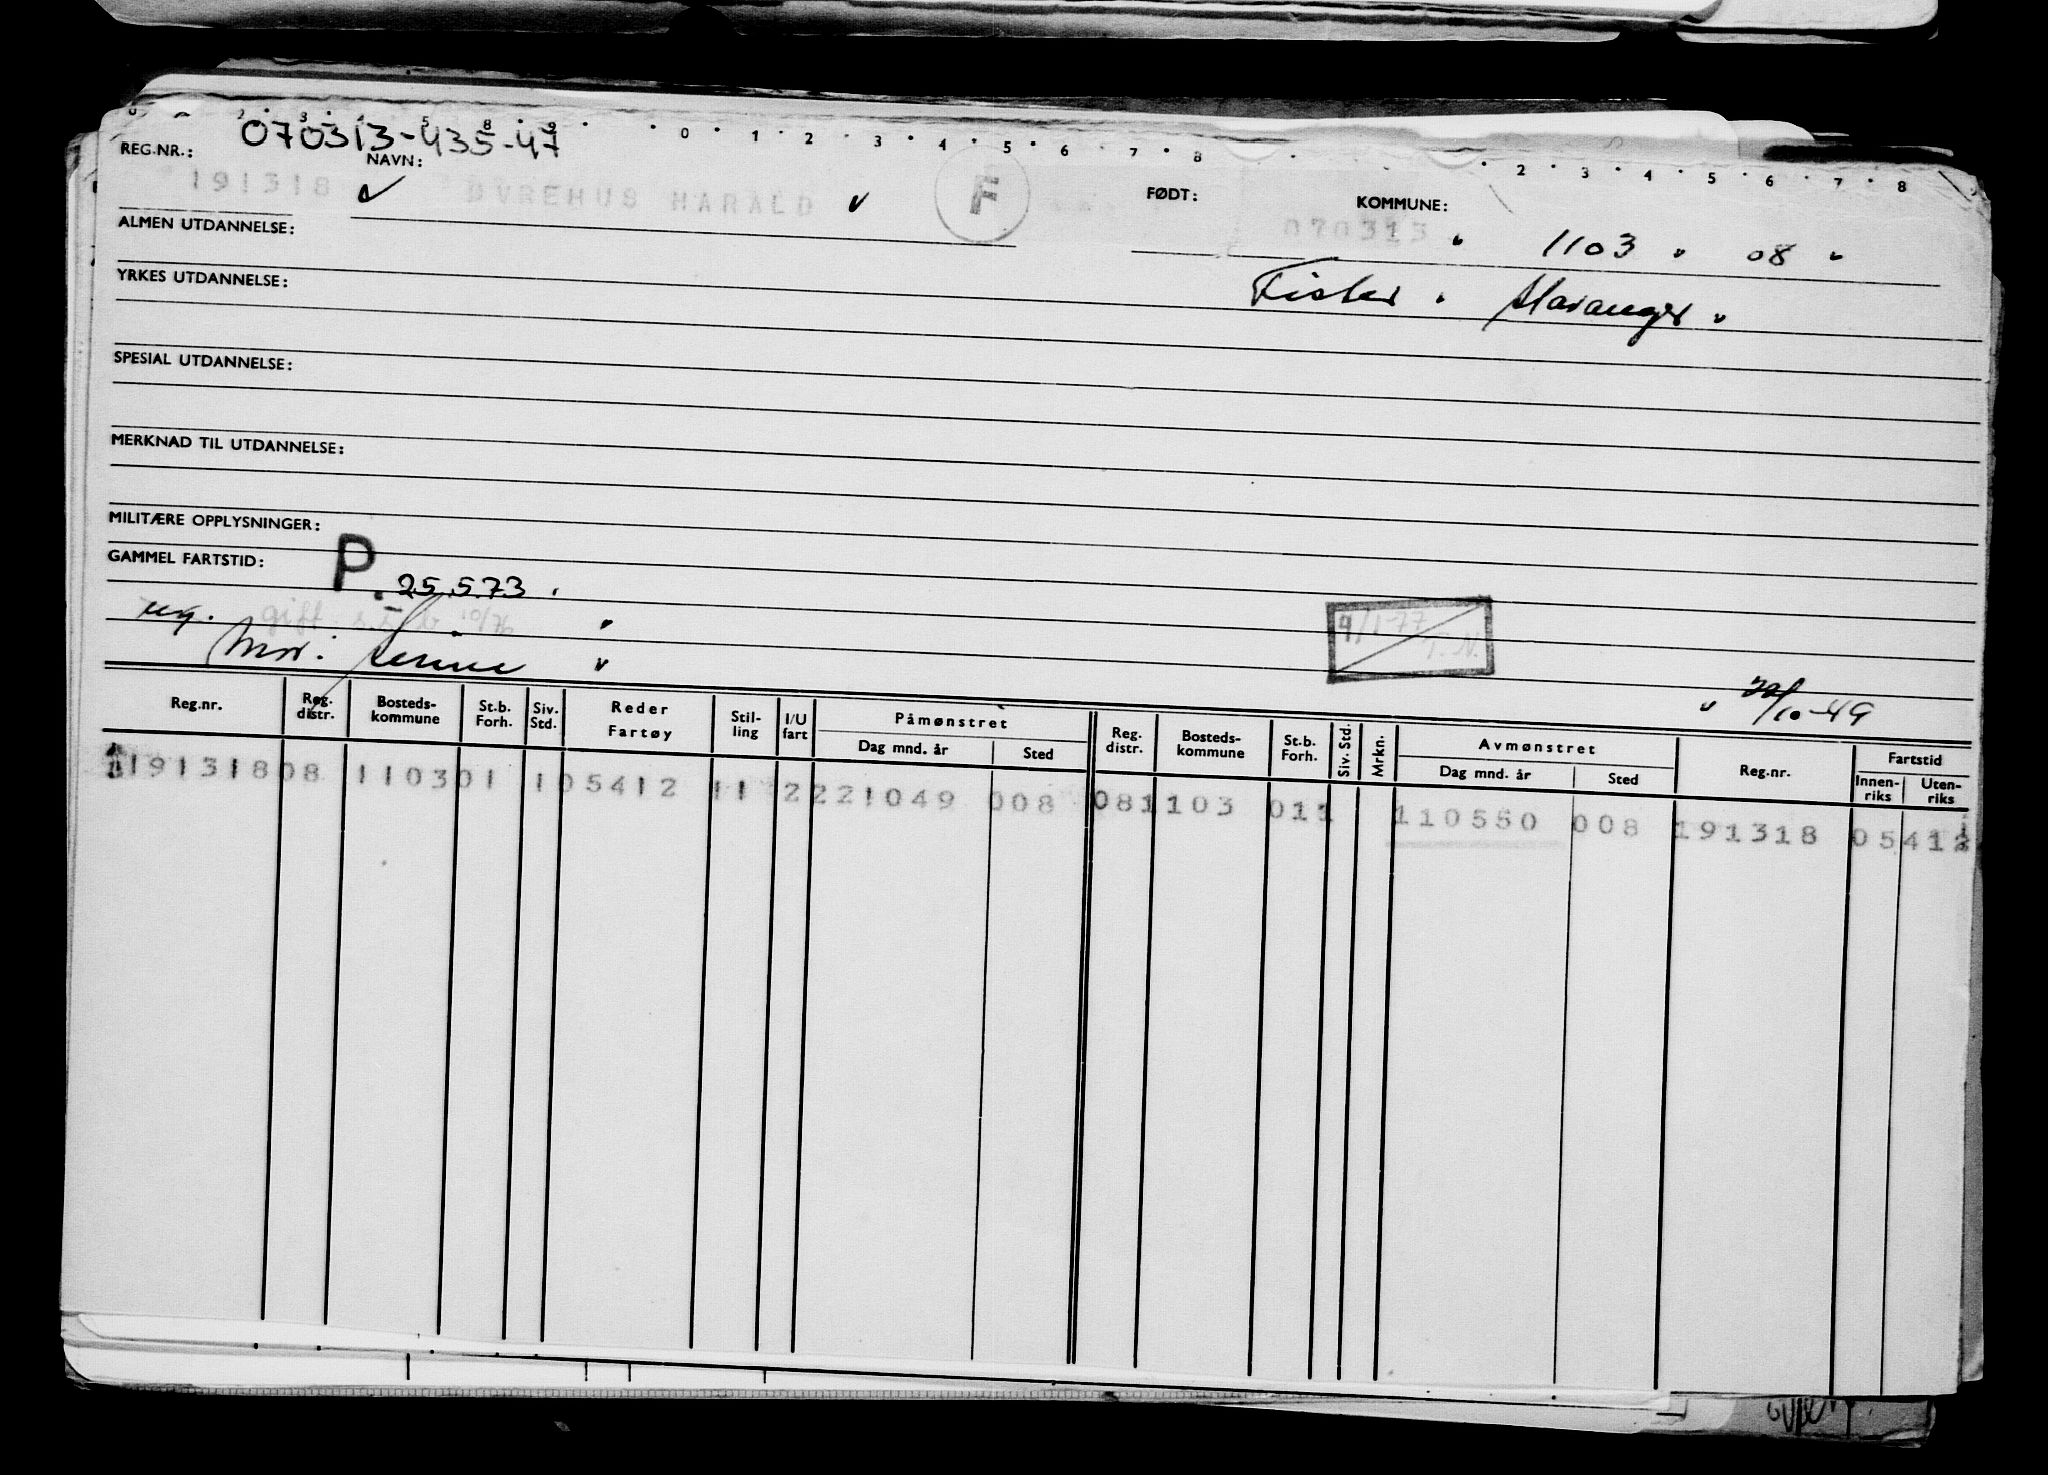 070313-435-47
0 1 2 3 4 5 6 7 8 2 3 4 5 6 7 8
REG.NR.: NAVN: FØDT: KOMMUNE:
191318 DYREHUS HARALD F 070313 1103 08
ALMEN UTDANNELSE:
YRKES UTDANNELSE: Fister Stavanger
SPESIAL UTDANNELSE:
MERKNAD TIL UTDANNELSE:
MILITÆRE OPPLYSNINGER:
GAMMEL FARTSTID: P. 25.5.73
ug. gift 10/76
Mor: 9/1-77 T.N.
22/10-49
Reg.nr. Reg. distr. Bosteds- kommune St.b. Forh. Siv. Std. Reder Fartøy Stil- ling I/U fart Påmønstret Dag mnd. år Sted Reg. distr. Bosteds- kommune St.b. Forh. Siv. Std. Mrkn. Avmønstret Dag mnd. år Sted Reg.nr. Fartstid Innen- riks Uten- riks
19131808 110301 105412 11 2221049 008 081103 011 110550 008 191318 05412